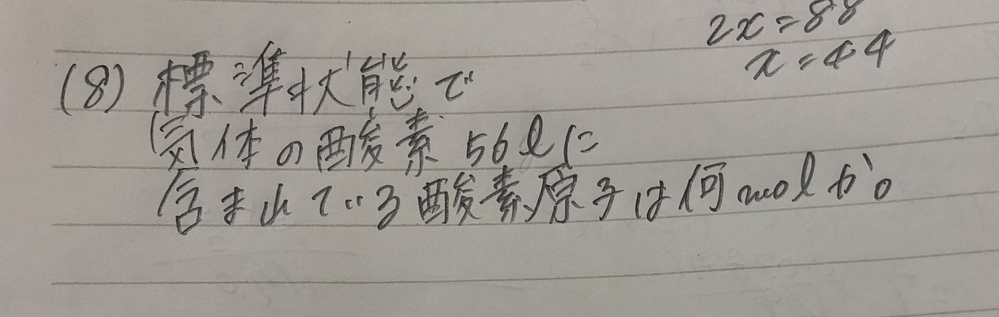 2x=88
x=44
(8) 標準状態で
気体の酸素 56ℓに
含まれている酸素原子は何molか。